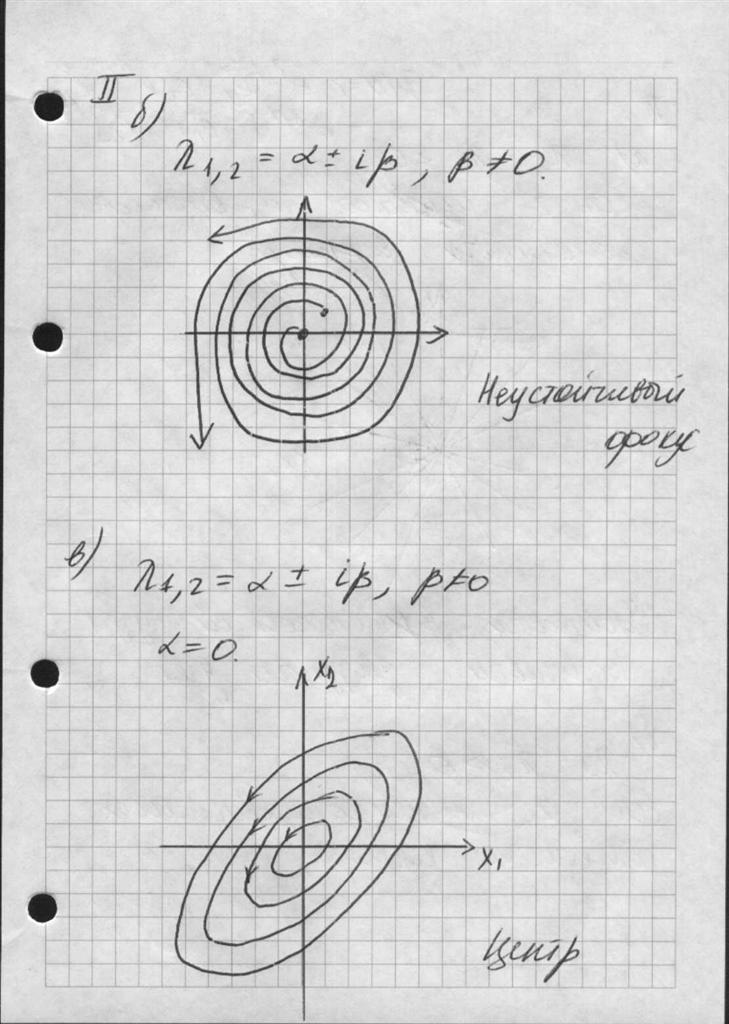 II б)
λ1,2 = α ± iβ, β ≠ 0.
Неустойчивый
фокус
в)
λ1,2 = α ± iβ, β ≠ 0
α = 0.
x2
x1
Центр